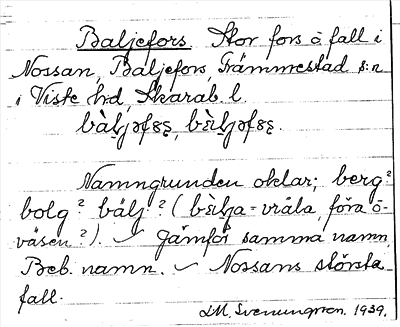 Baljefors. Stor fors o fall i
Nossan, Baljefors, Främmestad s:n
i Viste hd, Skarab. l.
bàl̥jəfꞩs̨, bɛ̀l̥jəfꞩs̨.
Namngrunden oklar; berg?
bolg? bälj? (bɛ̀lja = vråla, föra o-
väsen?). Jämför samma namn,
Beb. namn. Nossans största
fall.
L.M. Svenungsson. 1939.